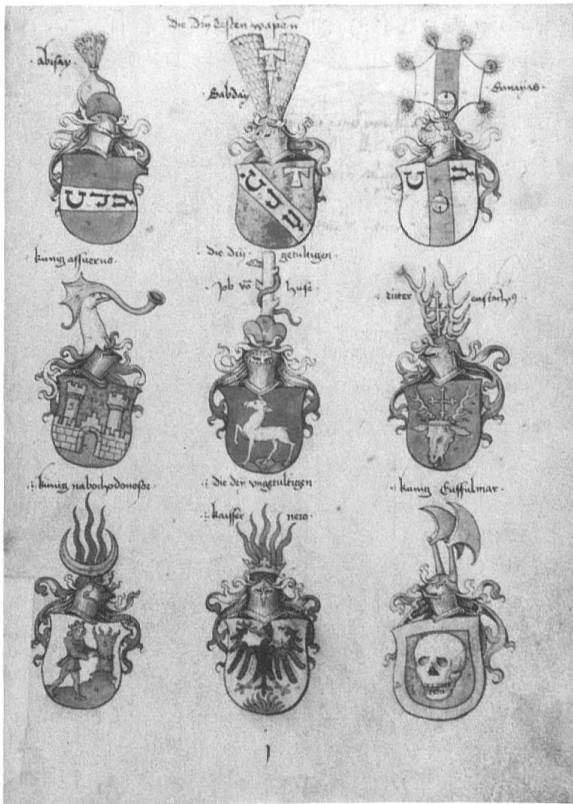 die Drÿ Ersten wapen
· abisay ·
Sabday
banayas ·
· künig assuerus ·
· die drÿ · getultigen ·
· Job vō
· ritter eustachꝰ
· künig nabochodonosor
· die drÿ vngetultigen
· kaisser nero ·
· künig Eussulmar ·